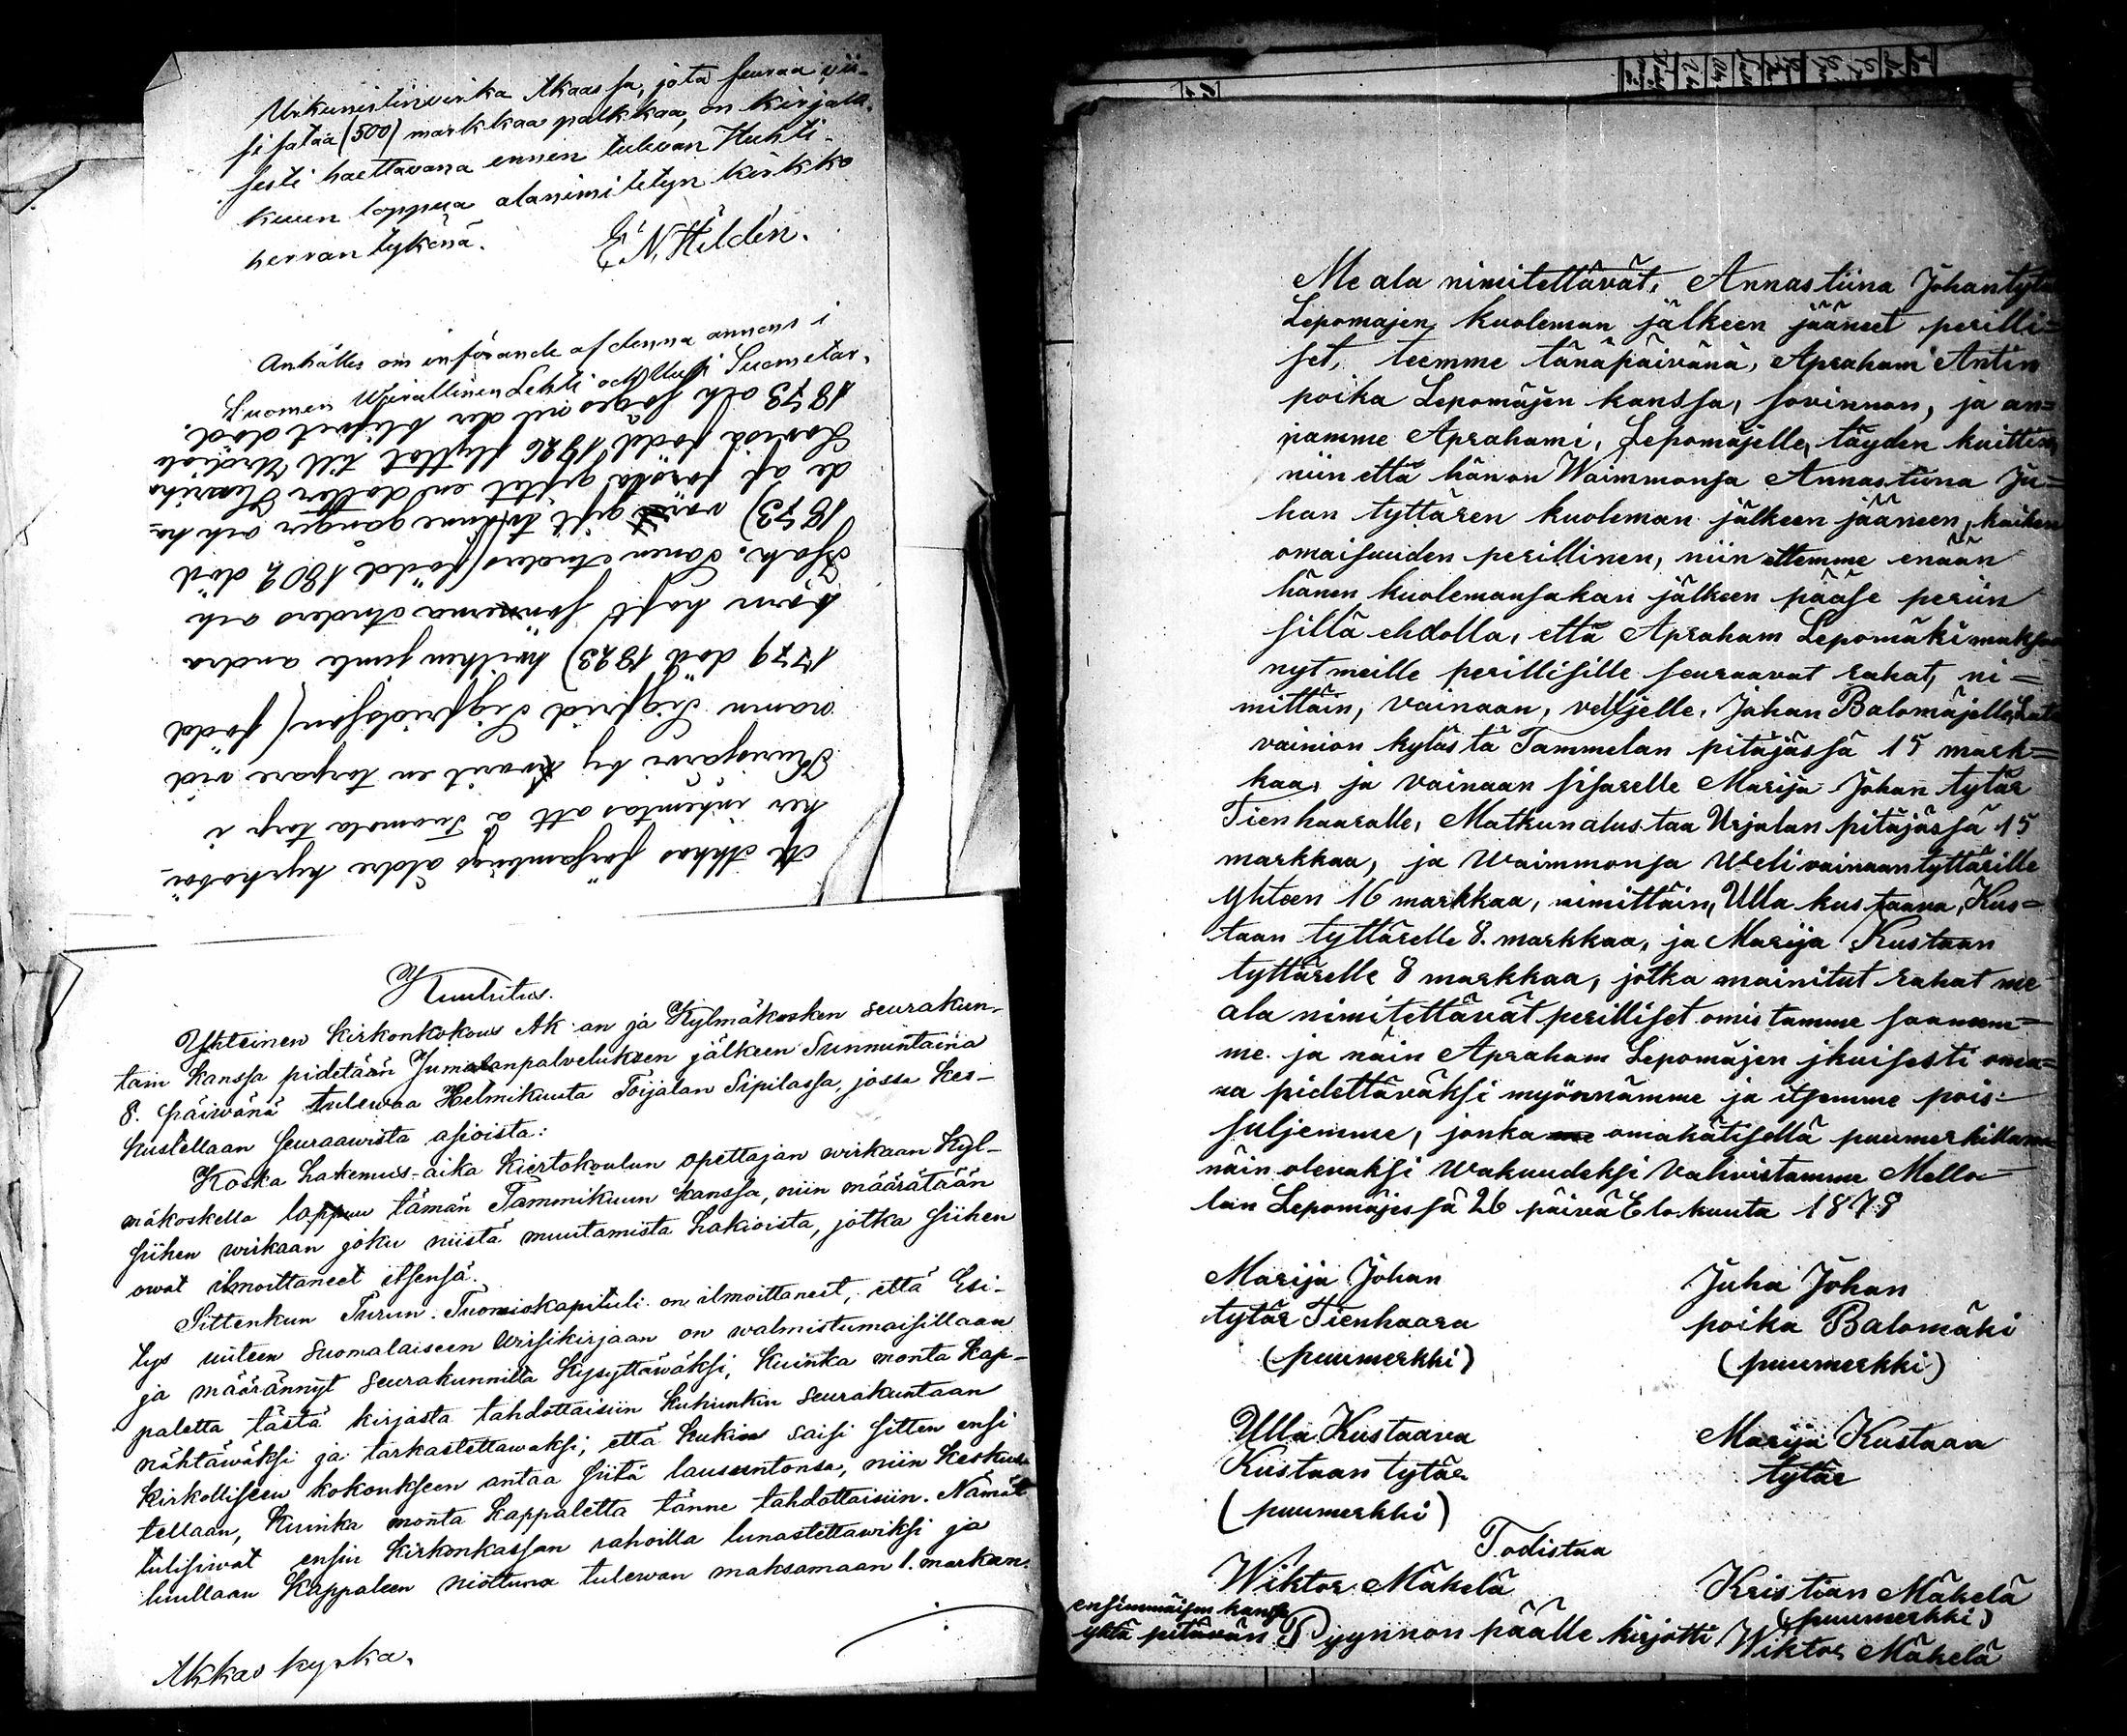 Urkunistinvirka Akaassa, jota seuraa vii-
si sataa (500) markkaa palkkaa, on kirjalli-
sesti haettavana ennen tulevan Huhti-
kuun loppua alanimitetyn kirkko
herran tykönä.
E. N. Hildén.
Anhålles om införande af denna annons i
Suomen Wirallinen Lehti och Uusi Suometar.
Af Akkas församlings äldre kyrkobö-
ker inhemtas att å Tuomola torp i
Kurisjärvi by varit en torpare vid
namn Sigfrid Sigfridsson (född
1779 död 1823) hvilken jemte andra
barn haft sönerna Anders och
Isak. Sonen Anders (född 1802 död
1873) varit gift tvänne gånger och ha-
de af första giftet en dotter Henrika
Lovisa född 1826 flyttat till Urdiala
1873 och säges nu der blifvit död.
Kuulutus.
Yhteinen kirkonkokous Ak:an ja Kylmäkosken seurakun-
tain kanssa pidetään Jumalanpalveluksen jälkeen Sunnuntaina
8. päivänä tulewaa Helmikuuta Toijalan Sipilässa, jossa kes-
kustellaan seuraawista asioista:
Koska hakemus-aika kiertokoulun opettajan wirkaan Kyl-
mäkoskella loppuu tämän Tammikuun kanssa, niin määrätään
siihen wirkaan joku niistä muutamista hakioista, jotka siihen
owat ilmoittaneet itsensä.
Sittenkun Turun Tuomiokapituli on ilmoittanut, että Esi-
tys uuteen Suomalaiseen Wirsikirjaan on walmistumaisillaan
ja määrännyt seurakunnilta kysyttäwäksi, kuinka monta kap-
paletta tästä kirjasta tahdottaisiin kuhunkin seurakuntaan
nähtäwäksi ja tarkastettawaksi, että kukin saisi sitten ensi
kirkolliseen kokoukseen antaa siitä lausuntonsa, niin keskus-
tellaan, kuinka monta kappaletta tänne tahdottaisiin. Nämät
tulisiwat ensin kirkonkassan rahoilla lunastettawiksi ja
luullaan kappaleen niottuna tulewan maksamaan 1. markan.
Akkas kyrka.
Me ala nimitettävät, Annastiina Johantytär
Lepomäjen, kuoleman jälkeen jääneet perilli=
set, teemme tänäpäivänä, Apraham Antin
poika Lepomäjen kanssa, sovinnon, ja an=
namme Aprahami, Lepomäjelle, täyden kuittin,
niin että hän on Waimmonsa Annastiina Ju=
han tyttären kuoleman jälkeen jääneen, kaiken
omaisuuden perillinen, niin ettemme enään
hänen kuolemansakan jälkeen pääse periin
sillä ehdolla, että Apraham Lepomäki maksaa
nyt meille perillisille seuraavat rahat, ni=
mittäin, vainaan, velljelle, Johan Balomäjelle,
vainion kylästä Tammelan pitäjässä 15 mark=
kaa, ja vainaan sisarelle Marija Johan tytär
Tienhaaralle, Matkun alustaa Urjalan pitäjässä 15
markkaa, ja waimmonsa Weli vainaan tyttärille
yhteen 16 markkaa, nimittäin, Ulla kustaava, Kus=
taan tyttärelle 8. markkaa, ja Marija Kustaan
tyttärelle 8 markkaa, jotka mainitut rahat me
ala nimitettävät perilliset omistamme saaneem=
me. ja näin Apraham Lepomäjen jkuisesti oma=
na pidettäväksi myönnämme ja itsemme pois=
suljemme, jonka omakätisellä puumerkillamme
näin olevaksi Wakuudeksi vahvistamme Mello=
lan Lepomäjessä 26 päivä Elokuuta 1878
Marija Johan
tytär Tienhaara
(puumerkki)
Juha Johan
poika Balomäki
(puumerkki)
Ulla Kustaava
Kustaan tytär
(puumerkki)
Marija Kustaan
tytär
Todistaa
Wiktor Mäkelä
Kristian Mäkelä
(puumerkki)
ensimmäisen kanssa
yhtä pitävän Pyynnon päälle kirjotti Wiktor Mäkelä